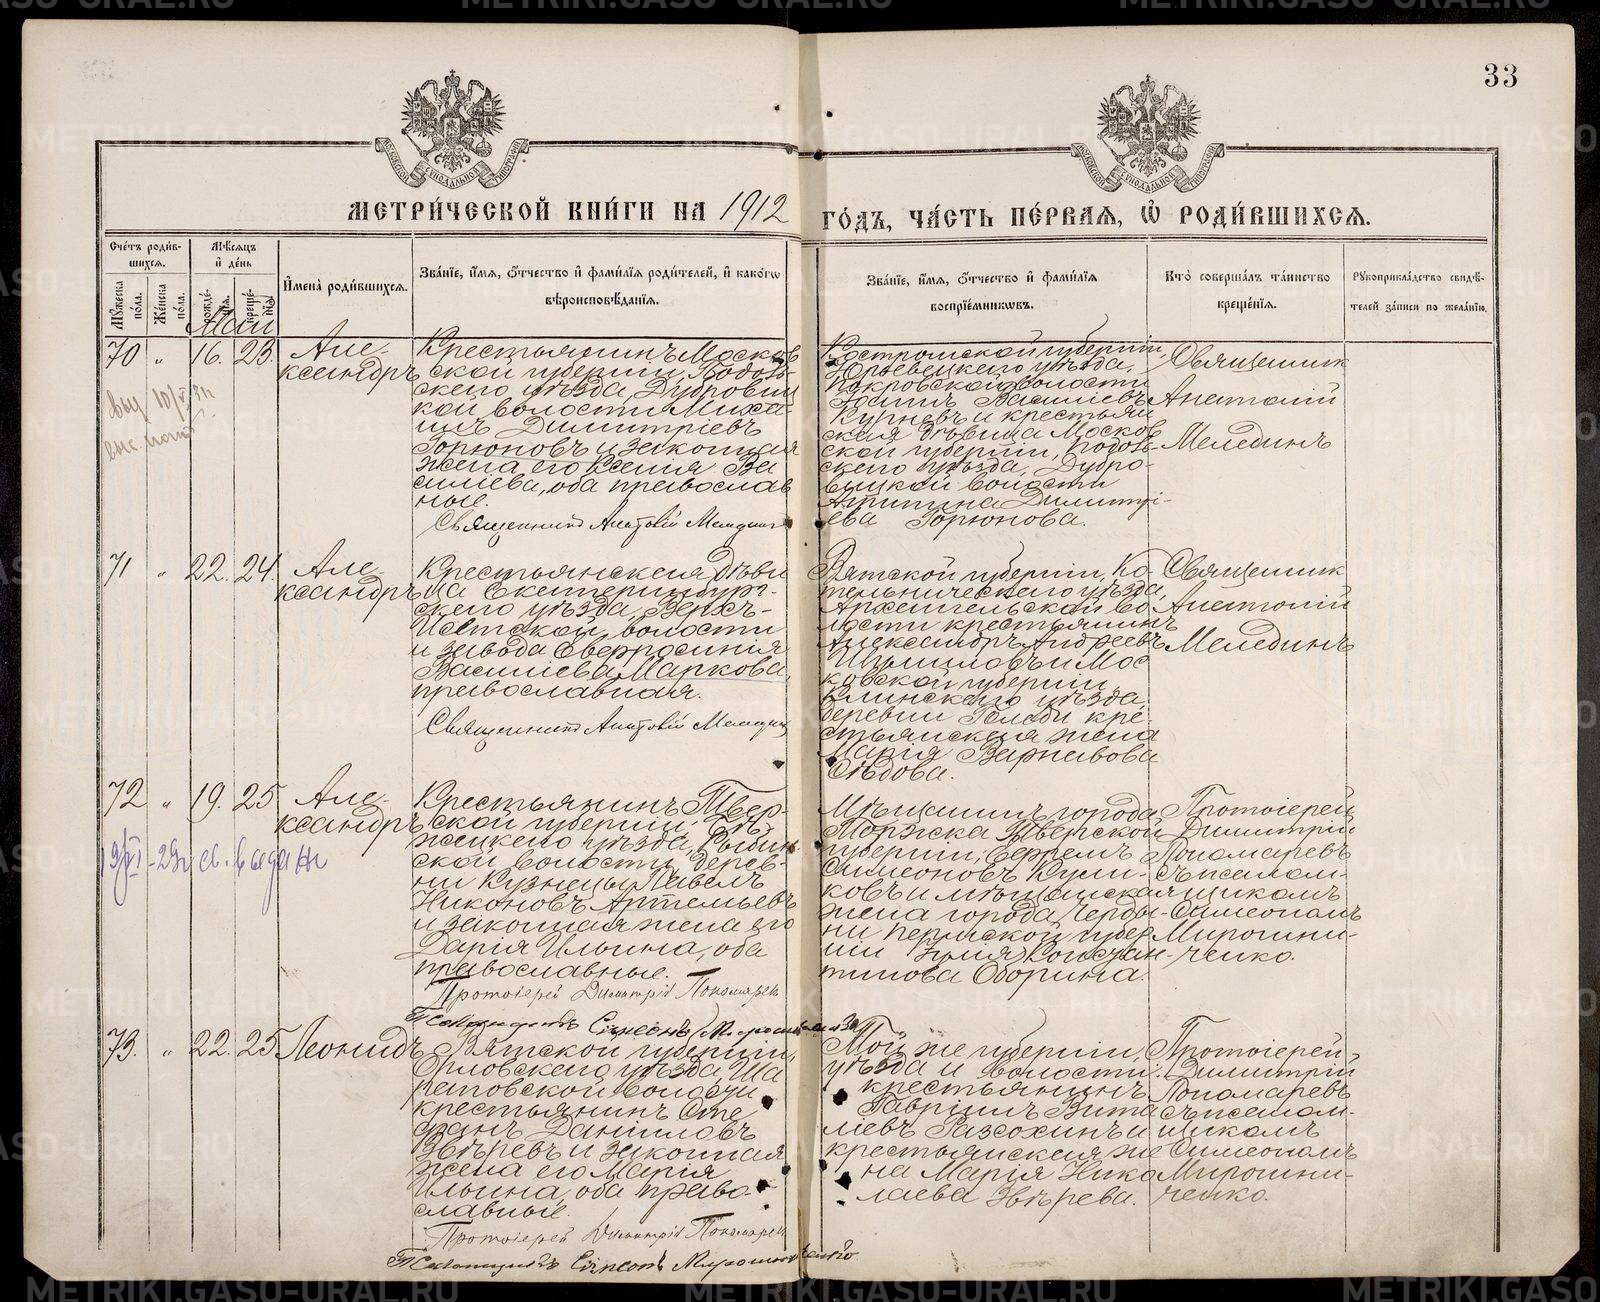 33
МЕТРИ́ЧЕСКОЙ КНИ́ГИ НА 1912 ГО́ДЪ, ЧА́СТЬ ПЕ́РВАѦ, Ѡ҆ РОДИ́ВШИХСѦ.
Сче́тъ роди́в-
шихсѧ.
Мꙋ́жеска пола.
Же́нска по́ла.
Мѣ́сѧцъ
и҆ де́нь
рожде́-
нїѧ.
креще́-
нїѧ.
И҆мена̀ роди́вшихсѧ.
Зва́нїе, и҆́мѧ, ѻ҆́тчество и҆ фами́лїѧ роди́телей, и҆ како́гѡ
вѣроисповѣ́данїѧ.
Зва́нїе, и҆́мѧ, ѻ҆́тчество и҆ фами́лїѧ
воспрїе́мникѡвъ.
Кто̀ соверша́лъ та́инство
креще́нїѧ.
Рꙋкоприкла́дство свидѣ́-
телей за́писи по жела́нїю.
Май
70 „ 16. 23.
Але-
ксандръ
Крестьянинъ Москов
ской губерніи, Подоль-
скаго уѣзда, Дубровиц
кой волости Миха-
илъ Димитріевъ
Горюновъ и законная
жена его Ксенія Ва
сильева, оба православ
ные.
Священникъ Анатолій Мелединъ
Костромской губерніи,
Юрьевецкаго уѣзда,
Покровской волости
Василіевъ
Курневъ и крестьян
ская дѣвица Москов
ской губерніи, Подоль-
скаго уѣзда, Дубро-
вицкой волости
Димитрі-
ева Горюнова.
Священник
Анатолій
Мелединъ
71 „ 22. 24.
Але-
ксандръ
Крестьянская дѣви
ца Екатеринбург-
скаго уѣзда, Верхъ-
Исетской волости
и завода Евфросинія
Василіева Маркова,
православная.
Священникъ Анатолій Мелединъ
Вятской губерніи, Ко-
тельническаго уѣзда,
Архангельской во
лости крестьянинъ
Александръ Андреевъ
и Мос
ковской губерніи
Клинскаго уѣзда,
деревни кре-
стьянская жена
Марія Варнавова
Сѣдова.
Священник
Анатолій
Мелединъ
72 „ 19. 25
Але-
ксандръ
Крестьянинъ Твер-
ской губерніи, Бѣ-
жецкаго уѣзда,
ской волости, дерев-
ни Кузнецы Павелъ
Никоновъ Артемьевъ
и законная жена его
Дарія Ильина, оба
православные.
Протоіерей Димитрій Пономарев
Псаломщикъ Сімеонъ Мирошниченко
Мѣщанинъ города
Торжка Тверской
губерніи, Ефремъ
Симеоновъ Кули-
ковъ и мѣщанская
жена города Черды-
ни Пермской губер
ніи Юлія Констан-
тинова Оборина.
Протоіерей
Димитрій
Пономаревъ
съ псалом-
щикомъ
Симеономъ
Мирошни-
ченко.
73. „ 22. 25
Леонидъ
Вятской губерніи,
Орловскаго уѣзда, Ша
рановской волости
крестьянинъ Сте
фанъ Даніиловъ
Звѣревъ и законная
жена его Марія
Ильина, оба право-
славные.
Протоіерей Димитрій Пономарев
Псаломщикъ Сімеонъ Мирошниченко
Той же губерніи,
уѣзда и волости:
крестьянинъ
Гавріилъ Вита
ліевъ Разсохинъ и
крестьянская же
на Марія Нико
лаева Звѣрева.
Протоіерей
Димитрій
Пономаревъ
съ псалом-
щикомъ
Симеономъ
Мирошни-
ченко.
METRIKI.GASO-URAL.RU